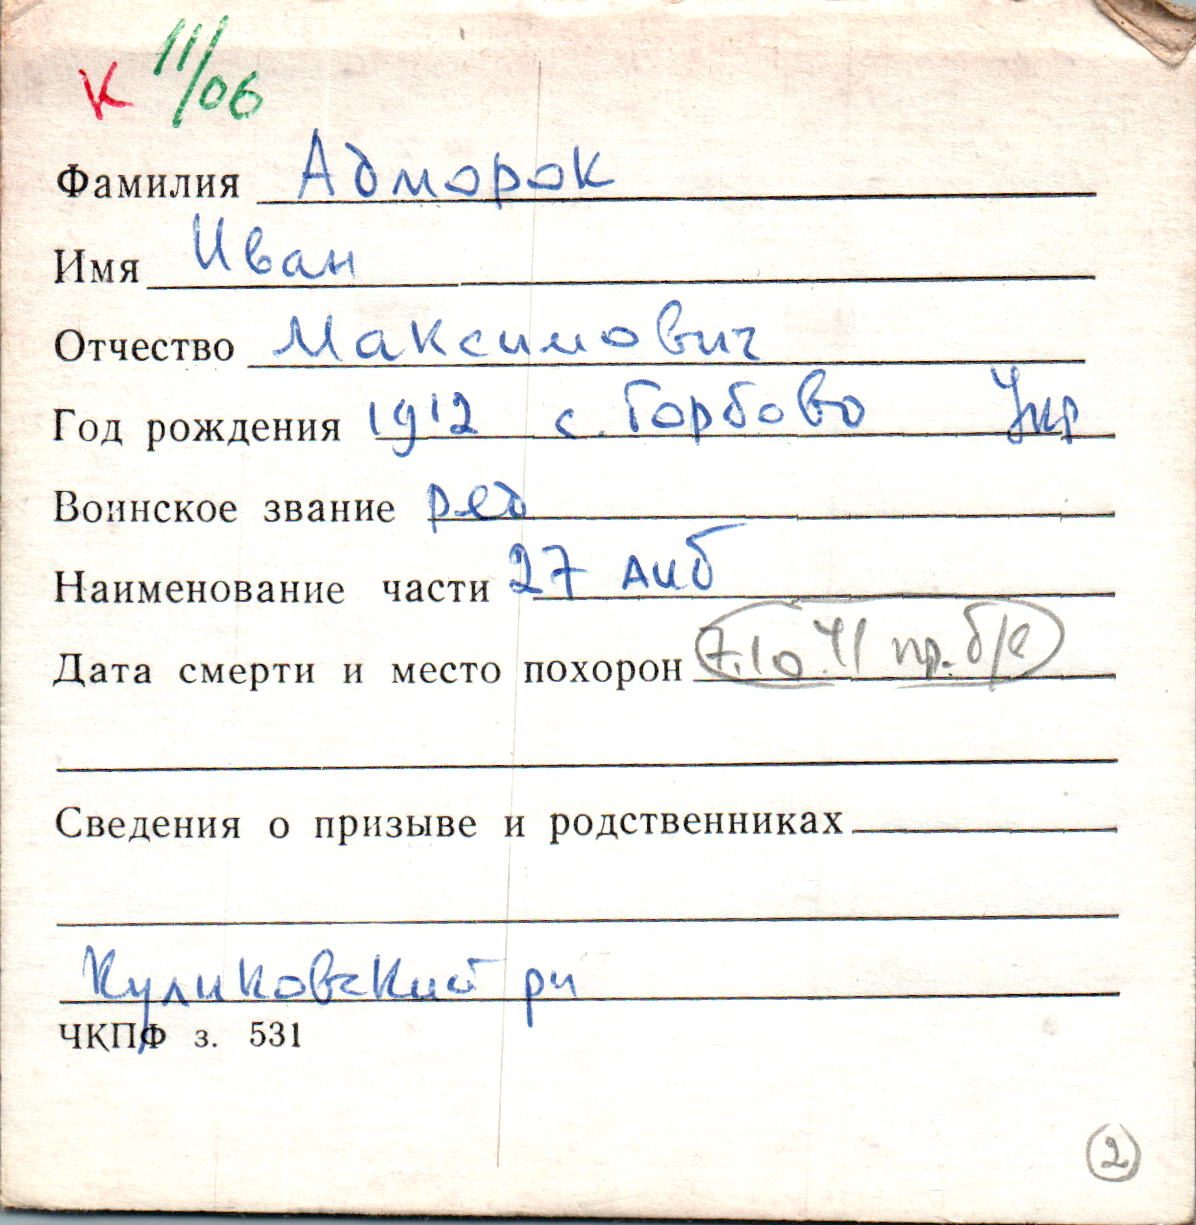 К 11/06
Фамилия Адморок
Имя Иван
Отчество Максимович
Год рождения 1912 с. Горбово Укр
Воинское звание ряд
Наименование части 27 АИБ
Дата смерти и место похорон 7.10.41 пр. б/в
Сведения о призыве и родственниках
Куликовский рн
ЧКПФ з. 531
2